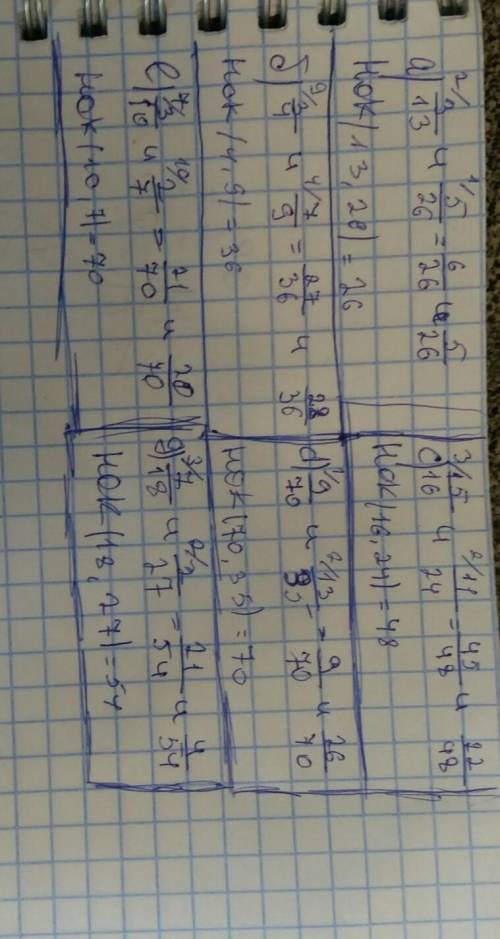 а) ²/ 3/13 и ¹/ 5/26 = 6/26 и 5/26
НОК (13, 26) = 26
б) ⁹/ 3/4 и ⁴/ 7/9 = 27/36 и 28/36
НОК (4, 9) = 36
е) ⁷/ 3/10 и ¹⁰/ 2/7 = 21/70 и 20/70
НОК (10, 7) = 70
с) ³/ 15/16 и ²/ 11/24 = 45/48 и 22/48
НОК (16, 24) = 48
d) ¹/ 9/70 и ²/ 13/35 = 9/70 и 26/70
НОК (70, 35) = 70
g) ³/ 7/18 и ²/ 2/27 = 21/54 и 4/54
НОК (18, 27) = 54